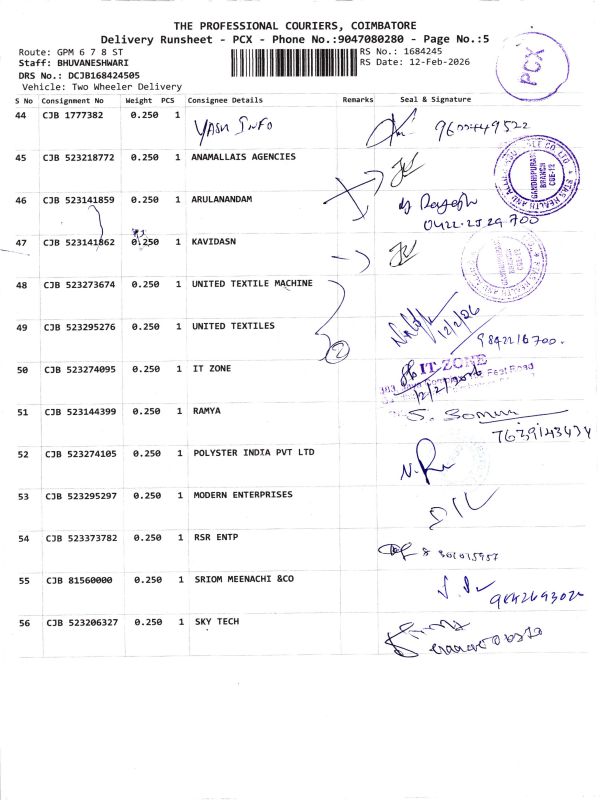 THE PROFESSIONAL COURIERS, COIMBATORE
Delivery Runsheet - PCX - Phone No.:9047080280 - Page No.:5
Route: GPM 6 7 8 ST
RS No.: 1684245
Staff: BHUVANESHWARI
RS Date: 12-Feb-2026
DRS No.: DCJB168424505
Vehicle: Two Wheeler Delivery
PCX
S No Consignment No Weight PCS Consignee Details Remarks Seal & Signature
44 CJB 1777382 0.250 1 YASH INFO
45 CJB 523218772 0.250 1 ANAMALLAIS AGENCIES
46 CJB 523141859 0.250 1 ARULANANDAM
0422-2529700
47 CJB 523141862 0.250 1 KAVIDASN
48 CJB 523273674 0.250 1 UNITED TEXTILE MACHINE
12/2/26
49 CJB 523295276 0.250 1 UNITED TEXTILES
2
50 CJB 523274095 0.250 1 IT ZONE
IT ZONE
12/2/2026
51 CJB 523144399 0.250 1 RAMYA
52 CJB 523274105 0.250 1 POLYSTER INDIA PVT LTD
53 CJB 523295297 0.250 1 MODERN ENTERPRISES
54 CJB 523373782 0.250 1 RSR ENTP
55 CJB 81560000 0.250 1 SRIOM MEENACHI &CO
56 CJB 523206327 0.250 1 SKY TECH